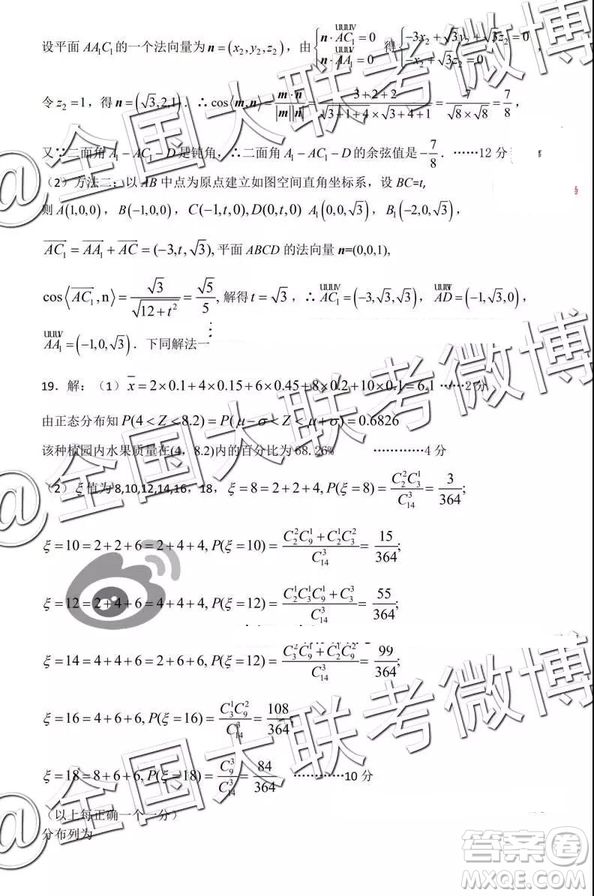 设平面 AA₁C₁ 的一个法向量为 n=(x₂,y₂,z₂)，由 {n·AC₁=0 n·AA₁=0 得 {-3x₂+√3y₂+√3z₂=0 -x₂+√3z₂=0 ，
令 z₂=1，得 n=(√3,2,1). ∴cos⟨m,n⟩=m·n/|m||n|=(3+2+2)/(√(3+1+4)×√(3+4+1))=7/(√8×√8)=7/8，
又∵二面角 A₁-AC₁-D 是钝角，∴二面角 A₁-AC₁-D 的余弦值是-7/8. ……12 分
（2）方法二：以 AB 中点为原点建立如图空间直角坐标系，设 BC=t,
则 A(1,0,0)，B(-1,0,0)，C(-1,t,0),D(0,t,0) A₁(0,0,√3)，B₁(-2,0,√3)，
AC₁=AA₁+AC=(-3,t,√3),平面 ABCD 的法向量 n=(0,0,1),
cos⟨AC₁,n⟩=√3/√(12+t²)=√5/5, 解得 t=√3，∴AC₁=(-3,√3,√3)，AD=(-1,√3,0)，
AA₁=(-1,0,√3). 下同解法一
19. 解：（1）x̄=2×0.1+4×0.15+6×0.45+8×0.2+10×0.1=6.1 ……2 分
由正态分布知 P(4<Z<8.2)=P(μ-σ<Z<μ+σ)=0.6826
该种植园内水果质量在(4，8.2)内的百分比为 68.26% …………4 分
（2）ξ值为 8,10,12,14,16，18，ξ=8=2+2+4,P(ξ=8)=C₂²C₃¹/C₁₄³=3/364;
ξ=10=2+2+6=2+4+4,P(ξ=10)=(C₂²C₉¹+C₂¹C₃²)/C₁₄³=15/364;
ξ=12=2+4+6=4+4+4,P(ξ=12)=(C₂¹C₃¹C₉¹+C₃³)/C₁₄³=55/364;
ξ=14=4+4+6=2+6+6,P(ξ=14)=(C₃²C₉¹+C₂¹C₉²)/C₁₄³=99/364;
ξ=16=4+6+6,P(ξ=16)=C₃¹C₉²/C₁₄³=108/364;
ξ=18=8+6+6,P(ξ=18)=C₉³/C₁₄³=84/364 …………10 分
（以上每正确一个一分）
分布列为
@全国大联考微博
@全国大联考微博
@全国大联考微博
答案圈
MXQE.COM